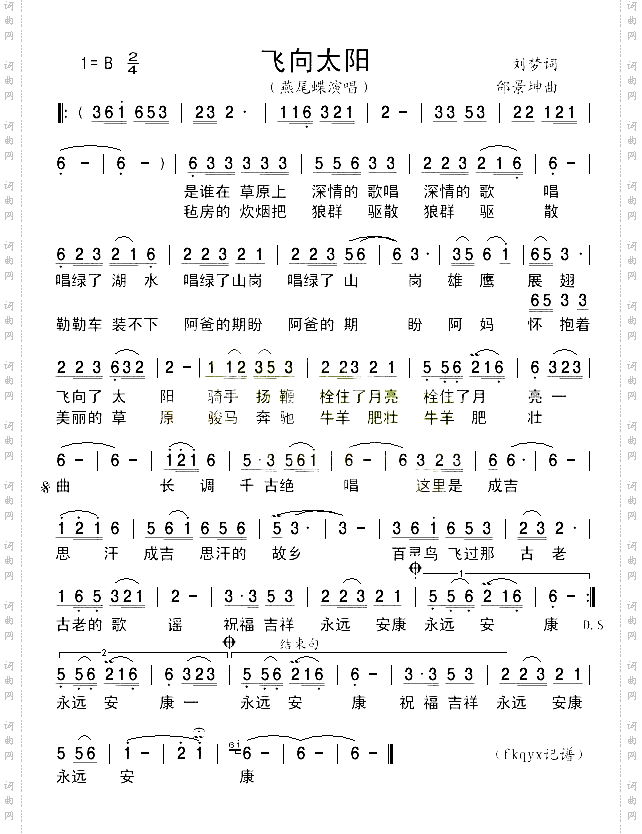 1=B 2/4
飞向太阳
刘梦词
(燕尾蝶演唱)
邰景坤曲
‖:( 361 653 | 23 2· | 116 321 | 2 - | 33 53 | 523 5 | 22 121 |
6 - | 6 - ) | 6 3 3 3 3 3 | 5 5 6 3 3 | 2 2 3 2 1 6 | 6 - |
是谁在 草原上 深情的 歌唱 深情的 歌 唱
毡房的 炊烟把 狼群 驱散 狼群 驱 散
6 2 3 2 1 6 | 2 2 3 2 1 | 2 2 3 56 | 6 3· | 35 6 1 | 65 3· |
唱绿了 湖 水 唱绿了山岗 唱绿了 山 岗 雄 鹰 展 翅
65 3 3
勒勒车 装不下 阿爸的期盼 阿爸的 期 盼 阿 妈 怀 抱着
2 2 3 632 | 2 - | 1 12 35 3 | 2 23 2 1 | 5 56 216 | 6 323 |
飞向了 太 阳 骑手 扬 鞭 栓住了月亮 栓住了月 亮 一
美丽的 草 原 骏马 奔 驰 牛羊 肥壮 牛羊 肥 壮
6 - | 6 - | 121 6 | 5·3 561 | 6 - | 6 323 | 66· |
曲 长 调 千 古绝 唱 这里是 成吉
1 21 6 | 561 653 | 53· | 3 - | 361 653 | 523 5 |
思 汗 成吉 思汗的 故乡 百灵鸟 飞过那 古 老
165 321 | 2 - | 3·3 53 | 223 21 | 5 56 216 | 6 - :‖
古老的 歌 谣 祝福 吉祥 永远 安康 永远 安 康 D.S
结束句
5 56 216 | 6 323 | 5 56 216 | 6 - | 3·3 53 | 223 21 |
永远 安 康一 永远 安 康 祝 福 吉祥 永远 安康
5 56 | 1 - | 2 1 | 6 - | 6 - ‖
(fkqyx记谱)
永远 安 康
词曲网